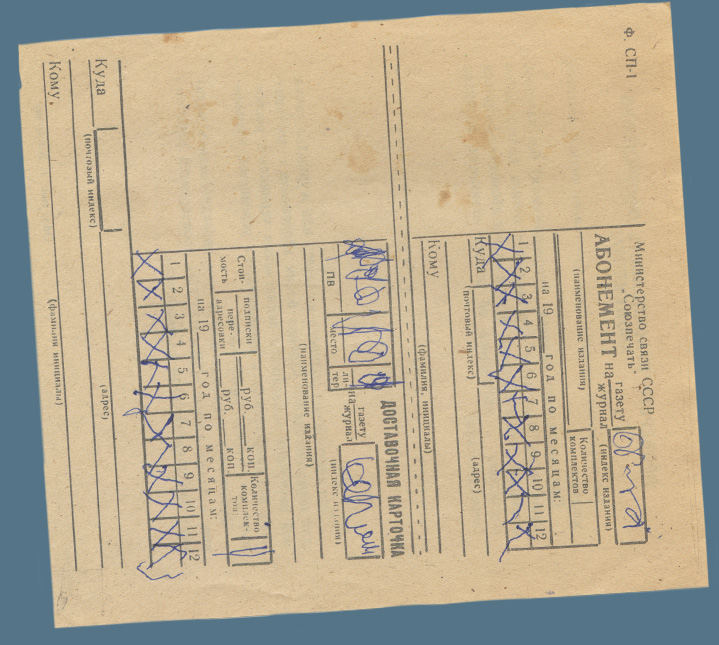 Ф. СП-1
Министерство связи СССР
„Союзпечать"
АБОНЕМЕНТ на газету журнал
(индекс издания)
(наименование издания)
Количество комплектов
на 19 год по месяцам:
1 2 3 4 5 6 7 8 9 10 11 12
Куда
(почтовый индекс) (адрес)
Кому
(фамилия, инициалы)
ДОСТАВОЧНАЯ КАРТОЧКА
ПВ место ли-тер
на газету журнал
(индекс издания)
(наименование издания)
Стои-мость подписки руб. коп. Количество комплек-тов
пере-адресовки руб. коп.
на 19 год по месяцам:
1 2 3 4 5 6 7 8 9 10 11 12
Куда
(почтовый индекс) (адрес)
Кому
(фамилия инициалы)